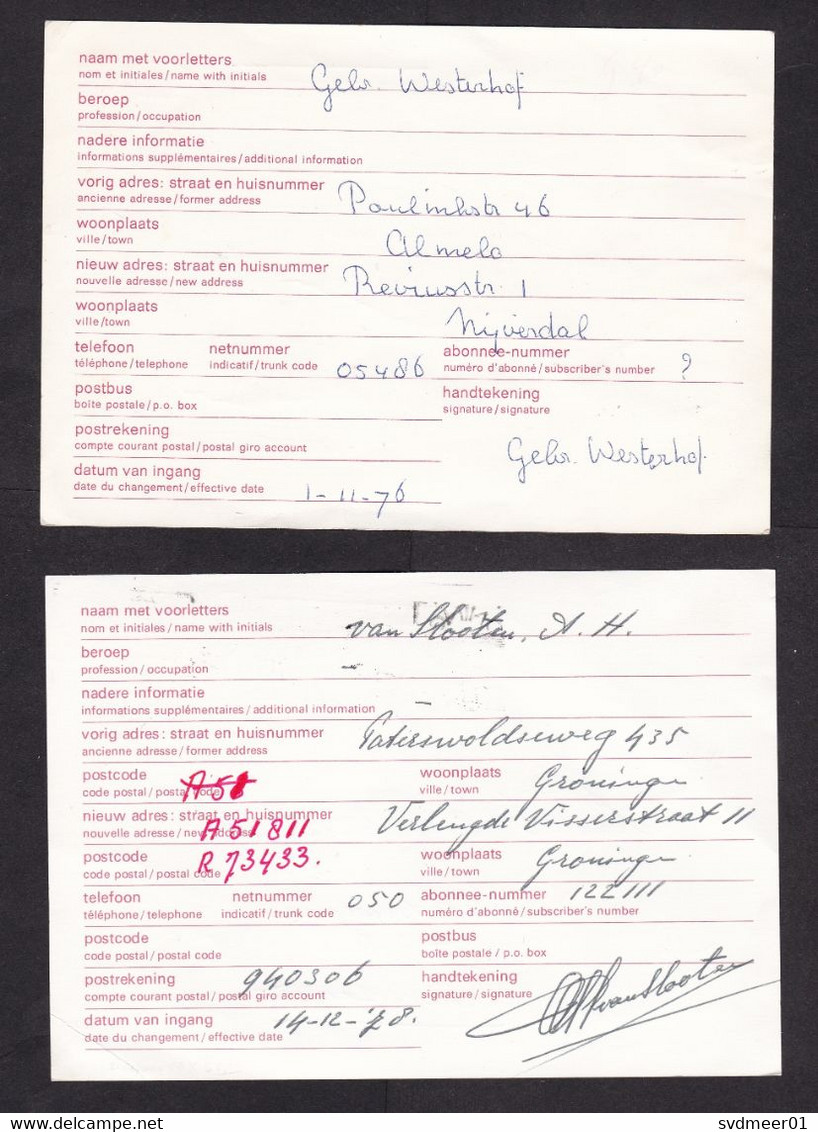 naam met voorletters
nom et initiales/name with initials
Gebr. Westerhof
beroep
profession/occupation
nadere informatie
informations supplémentaires/additional information
vorig adres: straat en huisnummer
ancienne adresse/former address
Paulinkstr 46
woonplaats
ville/town
Almelo
nieuw adres: straat en huisnummer
nouvelle adresse/new address
Reviusstr. 1
woonplaats
ville/town
Nijverdal
telefoon netnummer abonnee-nummer
téléphone/telephone indicatif/trunk code 05486 numéro d'abonné/subscriber's number ?
postbus handtekening
boîte postale/p.o. box signature/signature
postrekening
compte courant postal/postal giro account
Gebr. Westerhof.
datum van ingang
date du changement/effective date 1-11-76
naam met voorletters
nom et initiales/name with initials
van Slooten, A. H.
beroep
profession/occupation –
nadere informatie
informations supplémentaires/additional information –
vorig adres: straat en huisnummer
ancienne adresse/former address
Paterswoldseweg 435
postcode woonplaats
code postal/postal code A 51 ville/town Groningen
nieuw adres: straat en huisnummer
nouvelle adresse/new address
Verlengde Visserstraat 11
A 51 811
postcode woonplaats
code postal/postal code R 73433. ville/town Groningen
telefoon netnummer 050 abonnee-nummer 122111
téléphone/telephone indicatif/trunk code numéro d'abonné/subscriber's number
postcode postbus
code postal/postal code boîte postale/p.o. box
postrekening 940306 handtekening
compte courant postal/postal giro account signature/signature
AHvanSlooten
datum van ingang 14-12-'78.
date du changement/effective date
svdmeer01